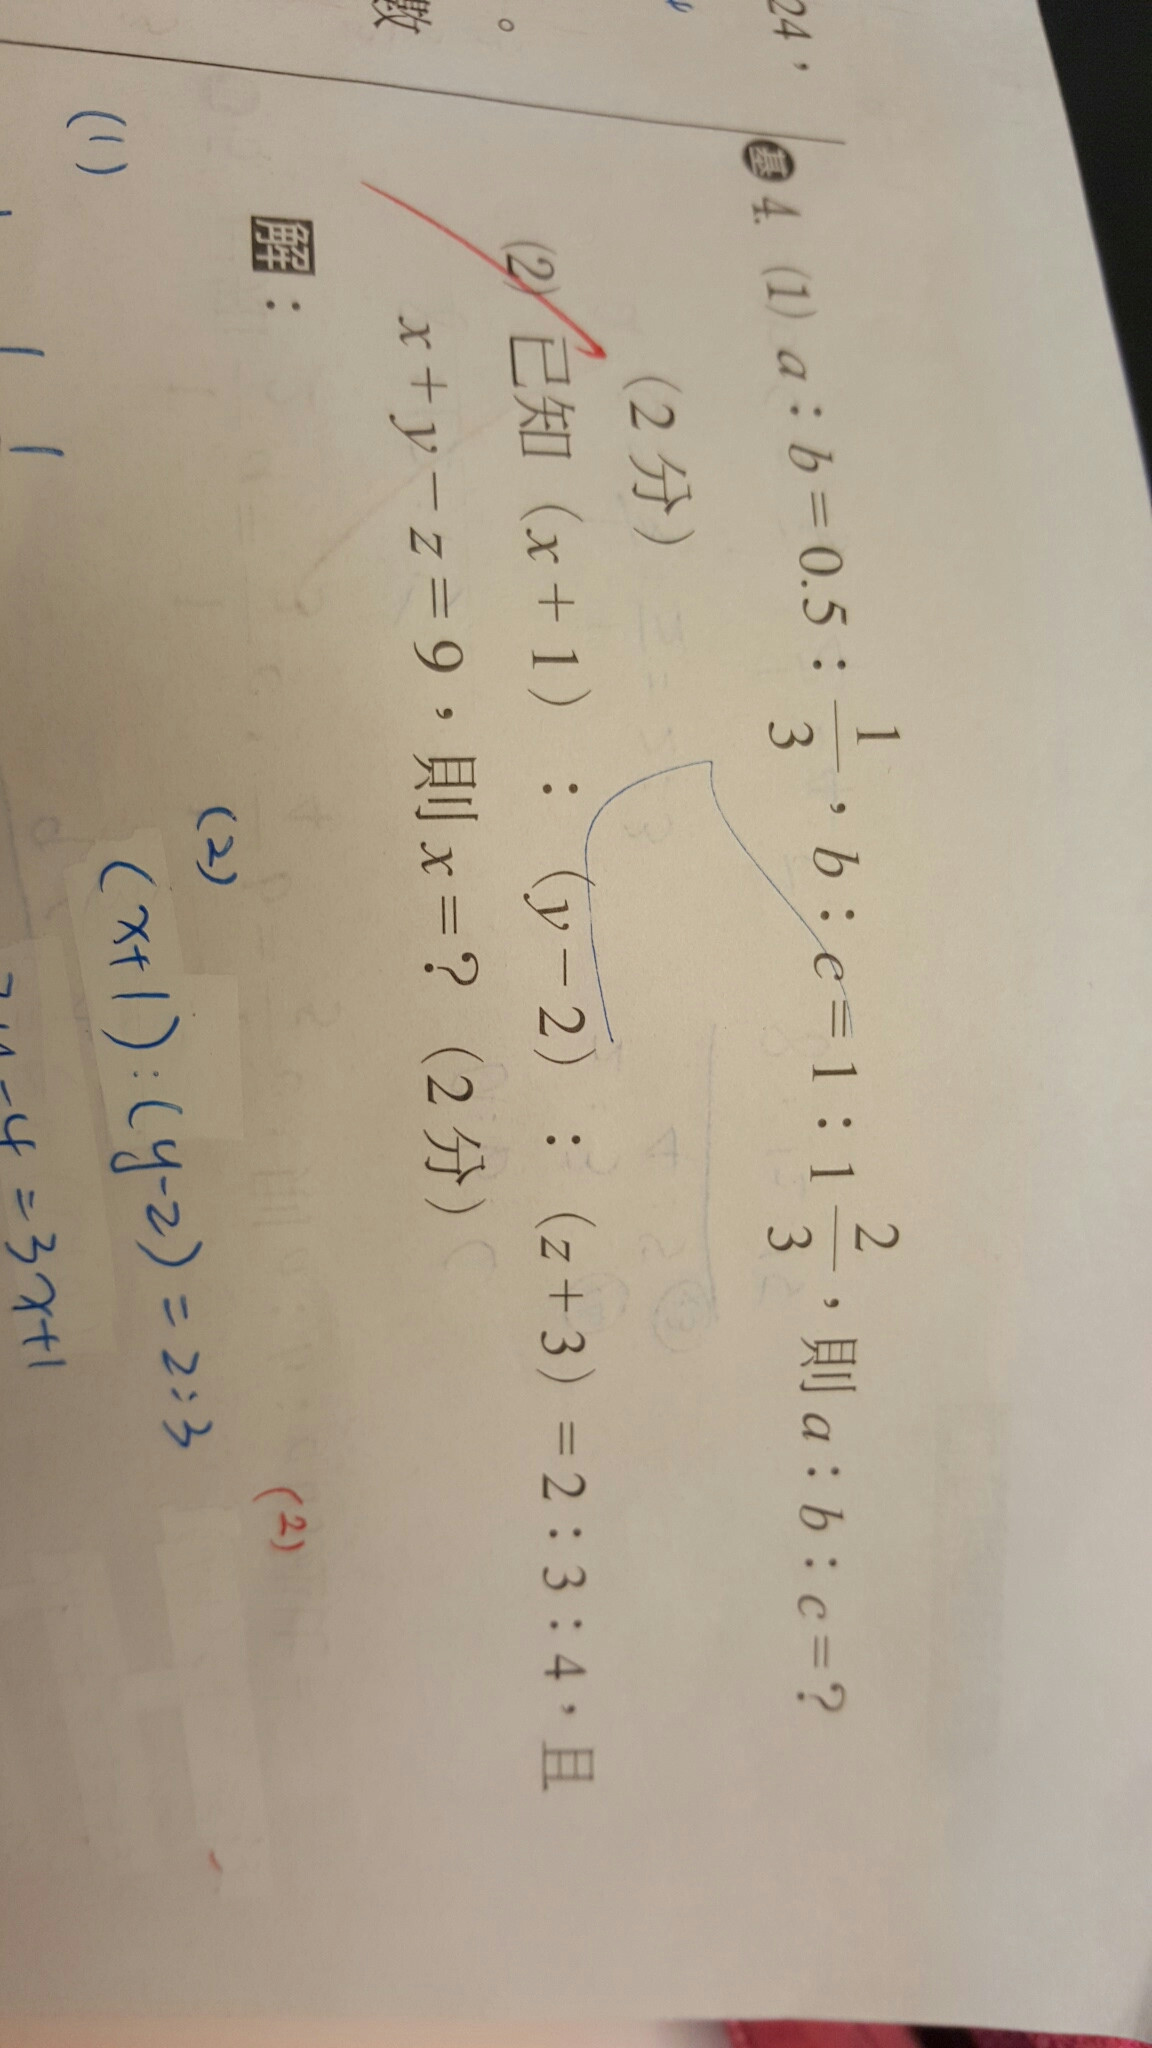 24，
。
數
基 4. (1) a：b＝0.5：1/3，b：c＝1：1 2/3，則 a：b：c＝？
(2分)
(2) 已知（x＋1）：（y－2）：（z＋3）＝2：3：4，且
x＋y－z＝9，則 x＝？（2分）
解：
(2)
(1)
(2)
(x+1):(y-2)=2:3
-4=3x+1